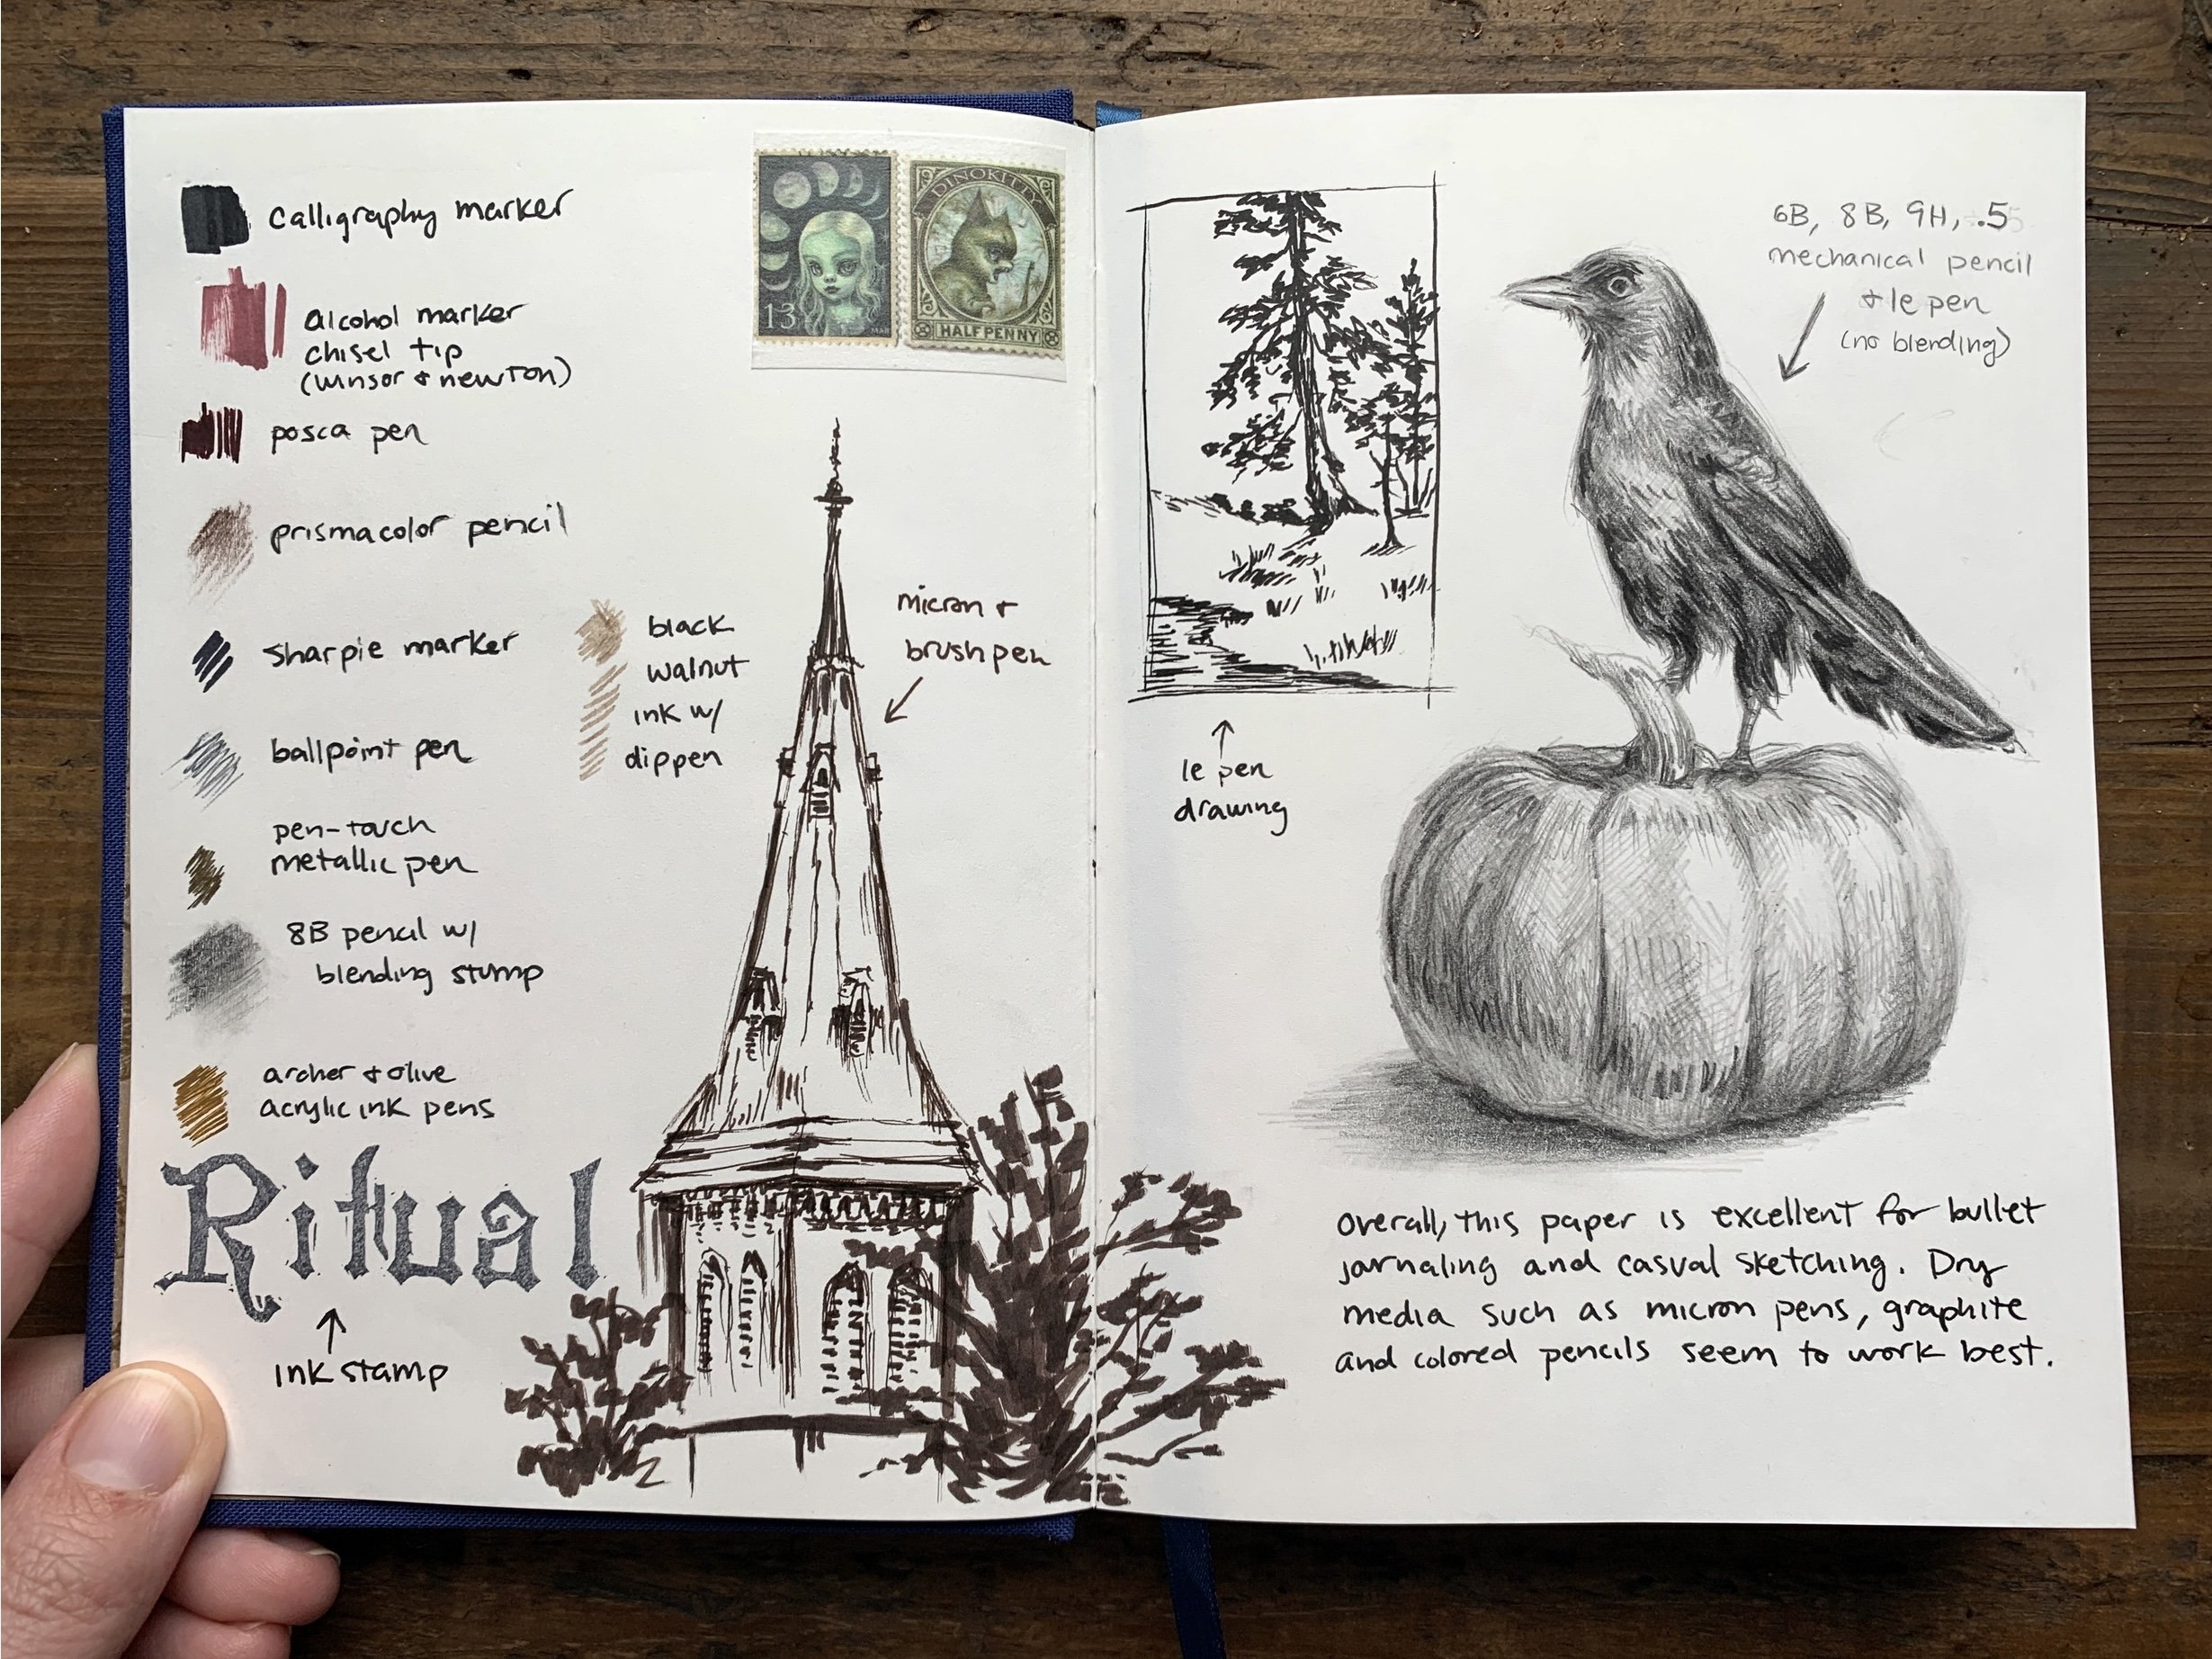 calligraphy marker
alcohol marker
chisel tip
(winsor + newton)
posca pen
prismacolor pencil
sharpie marker
ballpoint pen
pen-touch
metallic pen
8B pencil w/
blending stump
archer + olive
acrylic ink pens
Ritual
ink stamp
black
walnut
ink w/
dip pen
13
DINOKITTY
HALF PENNY
micron +
brush pen
le pen
drawing
6B, 8B, 9H, .5
mechanical pencil
+ le pen
(no blending)
Overall, this paper is excellent for bullet
journaling and casual sketching. Dry
media such as micron pens, graphite
and colored pencils seem to work best.